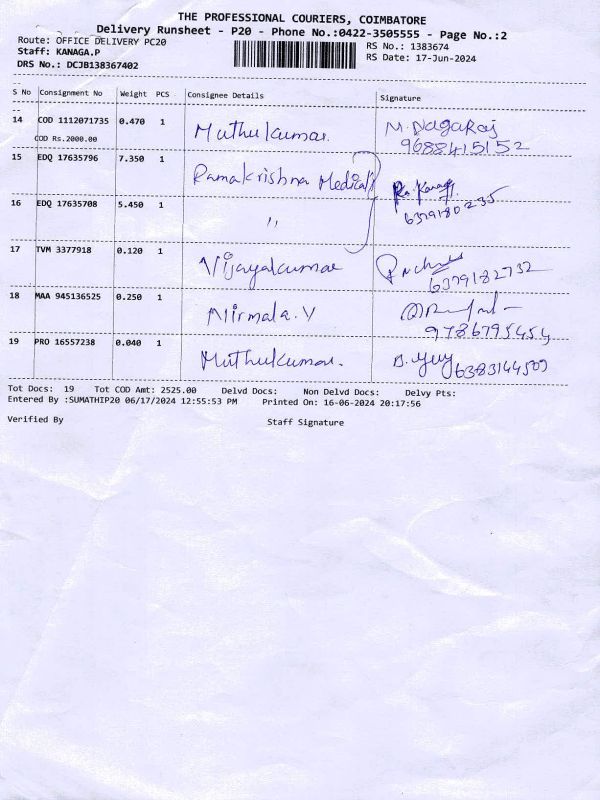 THE PROFESSIONAL COURIERS, COIMBATORE
Delivery Runsheet - P20 - Phone No.:0422-3505555 - Page No.:2
Route: OFFICE DELIVERY PC20
RS No.: 1383674
Staff: KANAGA.P
RS Date: 17-Jun-2024
DRS No.: DCJB138367402
S No Consignment No Weight PCS Consignee Details Signature
14 COD 1112071735 0.470 1 Muthukumar. M. Nagaraj
COD Rs.2000.00 9688415152
15 EDQ 17635796 7.350 1 Ramakrishna Medicals
16 EDQ 17635708 5.450 1 " 6379180235
17 TVM 3377918 0.120 1 Vijayakumar 6379182732
18 MAA 945136525 0.250 1 Nirmala.V
9786795454
19 PRO 16557238 0.040 1 Muthukumar.
Tot Docs: 19 Tot COD Amt: 2525.00 Delvd Docs: Non Delvd Docs: Delvy Pts:
Entered By :SUMATHIP20 06/17/2024 12:55:53 PM Printed On: 16-06-2024 20:17:56
Verified By Staff Signature